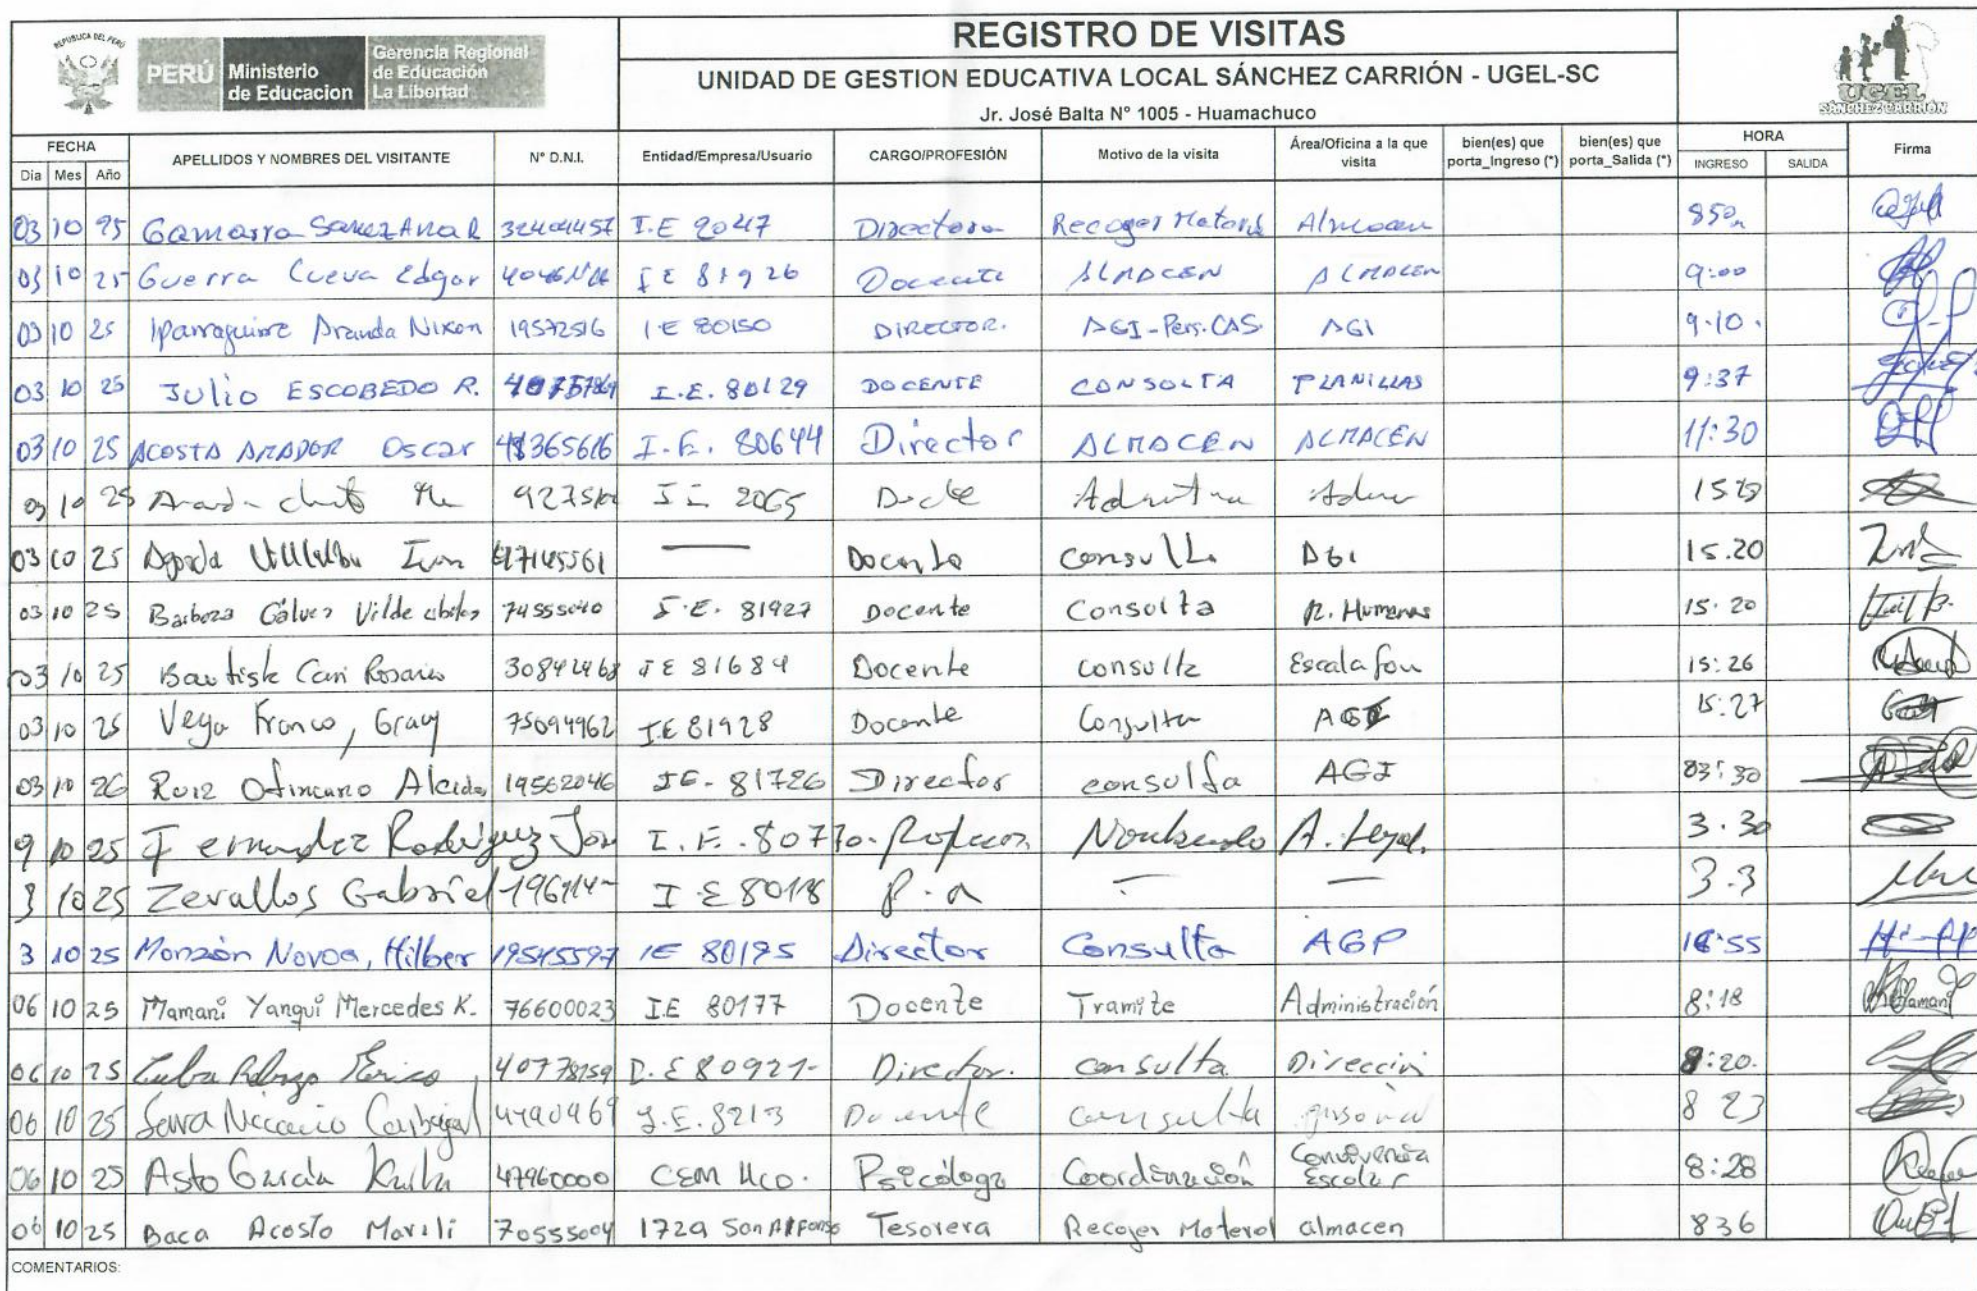 REPUBLICA DEL PERÚ
PERÚ Ministerio de Educacion Gerencia Regional de Educación La Libertad
REGISTRO DE VISITAS
UNIDAD DE GESTION EDUCATIVA LOCAL SÁNCHEZ CARRIÓN - UGEL-SC
Jr. José Balta N° 1005 - Huamachuco
UGEL
SÁNCHEZ CARRIÓN
FECHA APELLIDOS Y NOMBRES DEL VISITANTE N° D.N.I. Entidad/Empresa/Usuario CARGO/PROFESIÓN Motivo de la visita Área/Oficina a la que visita bien(es) que porta_Ingreso (*) bien(es) que porta_Salida (*) HORA Firma
Dia Mes Año INGRESO SALIDA
03 10 25 Gamarra Ana R I.E 2047 Directora Recoger Almacen 850
03 10 25 Guerra Cueva Edgar IE 81926 Docente ALMACEN ALMACEN 9:00
03 10 25 Iparraguirre Aranda Nixon 19572516 IE 80150 DIRECTOR. AGI-Pers.CAS. AGI 9:10.
03 10 25 Julio ESCOBEDO R. I.E. 80129 DOCENTE CONSULTA PLANILLAS 9:37
03 10 25 ACOSTA AMADOR Oscar I.E. 80644 Director ALMACEN ALMACÉN 11:30
03 10 25 IE 2065
03 10 25 47145561 — Docente Consulta AGI 15.20
03 10 25 Barboza Gálvez I.E. 81927 Docente Consulta R. Humanos 15.20
03 10 25 Cari Rosario 30842468 IE 81684 Docente consulta Escalafon 15:26
03 10 25 Vega Franco, Gray 75094962 I.E 81928 Docente Consulta AGI 15:27
03 10 26 Ruiz 19562046 IE- 81726 Director consulta AGI 03:30
9 10 25 Fernandez Rodriguez I.E. 80770 A. Legal. 3.30
3 10 25 Zevallos Gabriel I E 80118 — — 3.3
3 10 25 Monzón Novoa, Hilber 19545597 IE 80195 Director Consulta AGP 16:55
06 10 25 Mamani Yanqui Mercedes K. 76600023 IE 80177 Docente Tramite Administración 8:18
06 10 25 40778159 Director. consulta Dirección 8:20.
06 10 25 I.E. 8213 Docente consulta personal 8 23
06 10 25 Asto García 47960000 CEM Hco. Psicóloga Coordinación Convivencia Escolar 8:28
06 10 25 Baca Acosto Marili 70555004 1729 San Alfonso Tesorera Recoger Material almacen 836
COMENTARIOS: